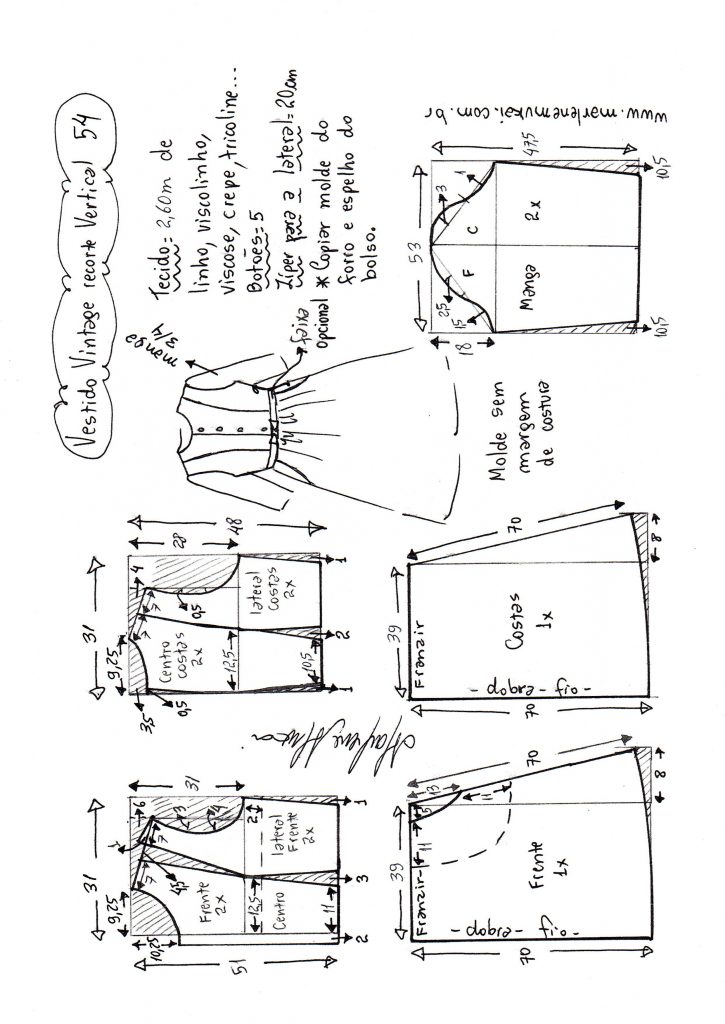 Vestido Vintage recorte Vertical 54
Tecido= 2,60m de
linho, viscolinho,
viscose, crepe, tricoline...
Botões=5
Zíper para a lateral=20cm
* Copiar molde do
forro e espelho do
bolso.
manga
3/4
faixa
opcional
Molde sem
margem
de costura
www.marlenemukai.com.br
53
47,5
18
3
1
2,5
1,5
F
C
Manga
2x
10,5
10,5
31
9,25
28
48
4
7
7
3,5
0,5
0,5
Centro
costas
2x
lateral
Costas
2x
12,5
10,5
1
2
1
39
70
70
Franzir
Costas
1x
- dobra - fio -
8
31
9,25
31
51
10,25
6
1
7
7
3
4
4,5
2
Frente
2x
Centro
lateral
Frente
2x
12,5
11
2
3
1
39
70
70
13
5
11
11
Franzir
Frente
1x
- dobra - fio -
8
Marlene Mukai